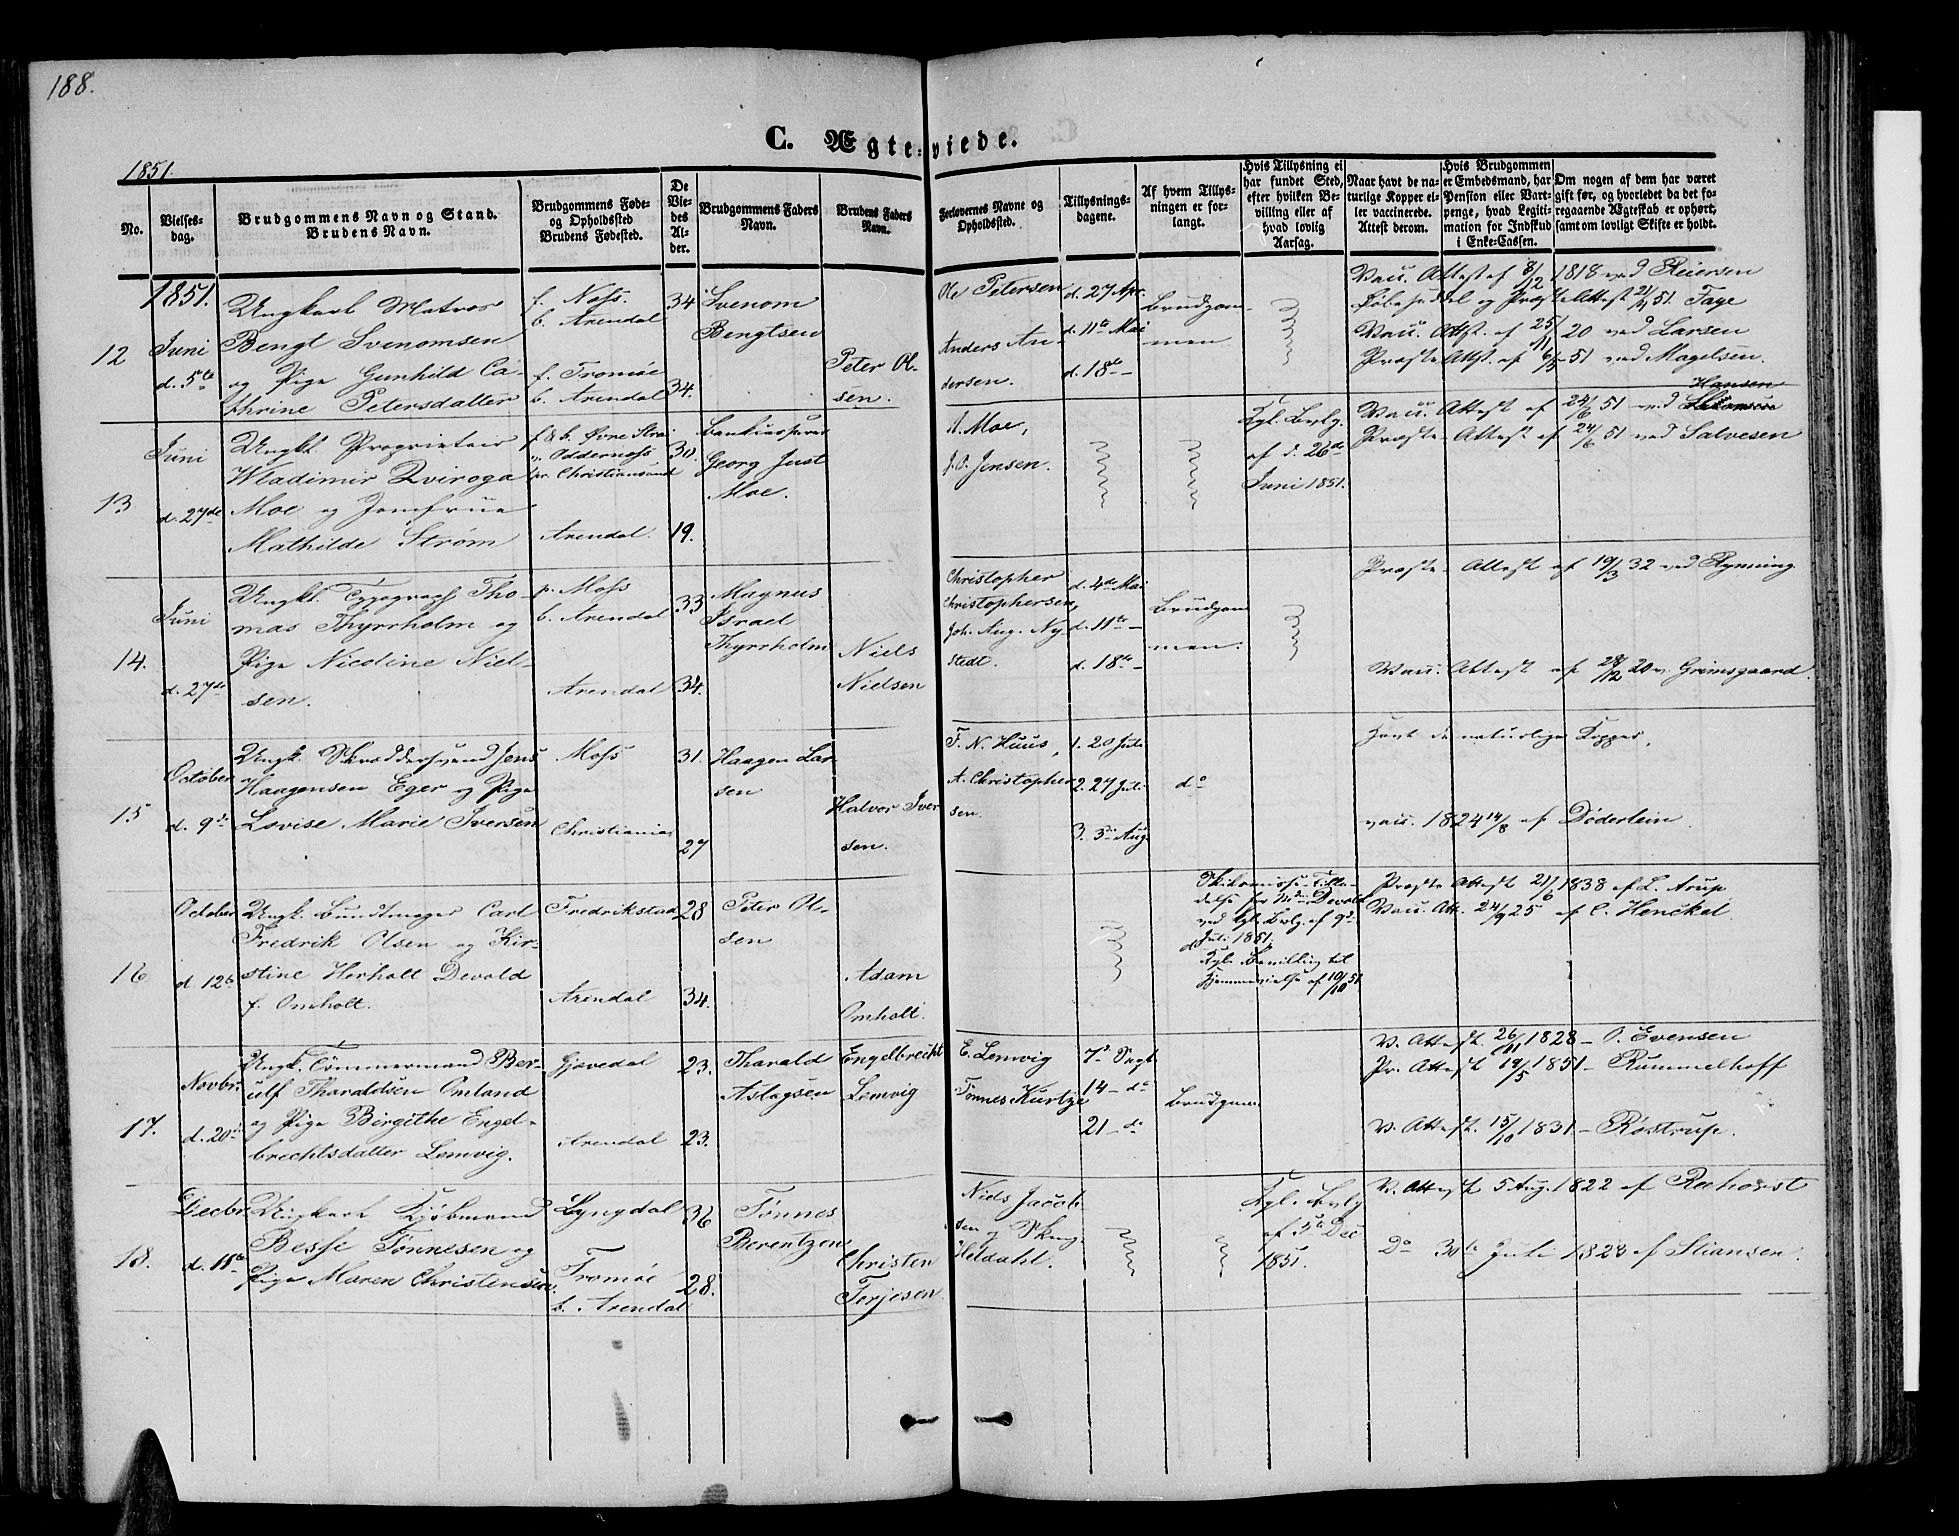 188.
C. Ægteviede.
1851.
No.
Vielses-
dag.
Brudgommens Navn og Stand.
Brudens Navn.
Brudgommens Føde-
og Opholdssted
Brudens Fødested.
De
Vie-
des
Al-
der.
Brudgommens Faders
Navn.
Brudens Faders
Navn.
Forlovernes Navne og
Opholdssted.
Tillysnings-
dagene.
Af hvem Tillys-
ningen er for-
langt.
Hvis Tillysning ei
har fundet Sted,
efter hvilken Be-
villing eller af
hvad lovlig
Aarsag.
Naar havt de na-
turlige Kopper el-
ler vaccinerede.
Attest derom.
Hvis Brudgommen
er Embedsmand, har
Pension eller Vart-
penge, hvad Legiti-
mation for Indskud
i Enke-Cassen.
Om nogen af dem har været
gift før, og hvorledes da det fo-
regaaende Ægteskab er ophørt,
samt om lovligt Skifte er holdt.
1851.
12
Juni
d. 5te
Ungkarl Matros
Bengt Svenomsen
og Pige Gunhild Ca-
thrine Petersdatter
f. Moss.
b. Arendal
f. Tromøe
b. Arendal
34
34.
Svenom
Bengtsen
Peter Ol-
sen.
Ole Petersen
Anders An-
dersen.
d. 27 Apr.
d. 11te Mai
d. 18de -
Brudgom-
men
Vacc. Attest af 8/12 1818 ved Reiersen
Døbeseddel og Præste Attest 21/4 51. Faye
Vacc. Attst. af 25/11 20 ved Larsen
Præste Attst. af 6/5 - 51 ved Magelsen.
13
Juni
d. 27de
Ungkl. Proprietær
Wladimir Qviroga
Moe og Jomfrue
Mathilde Strøm
f & b. Øvre Strai
i Oddernæss
pr. Christiansand
Arendal.
30.
19.
Bankiersfarer
Georg Just
Moe.
A. Moe,
J. P. Jensen.
Kgl. Bevlg.
af d. 26de
Juni 1851.
Vacc. Attest af 24/6 51 ved Hansen
Præste Attest af 24/6 51 ved Salvesen
14.
Juni
d. 27de
Ungkl. Typograph Tho-
mas Thyrrholm og
Pige Nicoline Niel-
sen.
p. Moss
b. Arendal
Arendal
33
34.
Magnus
Israel
Thyrrholm
Niels
Nielsen
Christopher
Christophersen,
Joh. Aug. Ny-
stedt.
d. 4de Mai
d. 11te -
d. 18de -
Brudgom
men.
Præste- Attest af 19/3 32 ved Rynning
Vacc. Attest af 28/12 20 v. Grimsgaard.
15
October
d. 9de
Ungk. Skræddersvend Jens
Haagensen Eger og Pige
Lovise Marie Iversen
Moss
Christiania
31.
27
Haagen Lar
sen
Halvor Iver
sen.
F. N. Huus,
A. Christopher
sen.
1. 20 Juli
2. 27 Juli
3. 3die Aug.
do
Havt de naturlige Kopper.
vacc. 1824 14/8 af Døderlein
16
October
d. 12te
Ungk. Bundtmager Carl
Fredrik Olsen og Kir-
stine Herholt Devold
f. Omholt.
Fredrikstad
Arendal
28
34.
Peter Ol-
sen
Adam
Omholt.
Skilsmisse- Tilla-
delse for Md. Devold
ved kgl. Bevlg. af 9de
Juli 1851.
Kgl. Bevilling til
Hjemmevielse af 10/10 51
Præste Attest 21/6 1838 af L. Arup
Vacc. Att. 24/9 25 af C. Henckel.
17.
Novbr.
d. 20de
Ungk. Tømmermand Ber-
ulf Tharaldsen Omland
og Pige Birgithe Engel-
brechtsdatter Lemvig.
Gjøvedal
Arendal
23.
23.
Tharald
Aslagsen
Engelbrecht
Lemvig
E. Lemvig
Tønnes Kurtze
7de Sept
14 - do
21 - do
Brudgom.
V. Attest 26/11 1828 - O. Evensen
Pr. Attest 19/5 1851 - Rummelhoff
V. Attest. 15/10 1831 - Røstrup.
18.
Decbr.
d. 15de
Ungkarl Kjøbmand
Besse Tønnesen og
Pige Maren Christensen
Lyngdal
Tromøe
b. Arendal
36
28.
Tønnes
Berentzen
Christen
Terjesen.
Niels Jacob-
sen og
Heldahl.
Kgl. Bevlg
af 5te Dec
1851.
V. Attest 5 Aug. 1822 af
Do 30te Juli 1823 af Stiansen.